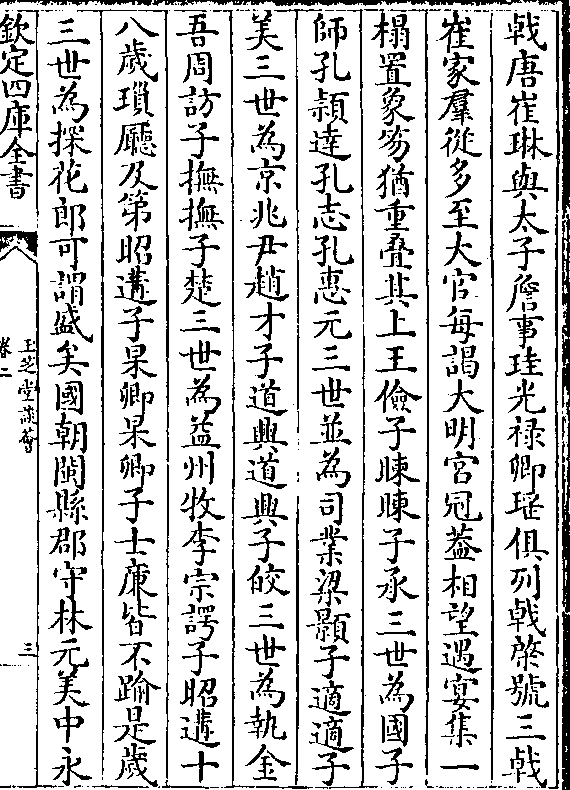 戟唐崔琳與太子詹事珪光禄卿瑤俱列戟榮號三戟
崔家羣從多至大官每謁大明宫冠葢相望遇宴集一
榻置象笏猶重疊其上王儉子暕暕子承三世為國子
師孔頴達孔志孔惠元三世並為司業梁顥子適適子
美三世為京兆尹趙才子道興道興子皎三世為執金
吾周訪子撫撫子楚三世為益州牧李宗諤子昭遘十
八歲瑣㕔及第昭遘子杲卿杲卿子士庶皆不踰是歲
三世為探花郎可謂盛矣國朝閩縣郡守林元美中永
欽定四庫全書
玉芝堂談薈
卷二
三